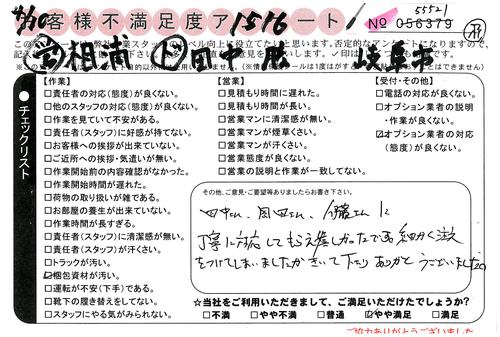 4/10 お客様不満足度アンケート! 1516
No 056379 5552-1
営 相浦 ト 田中服 岐阜市
チェックリスト
【作業】
□責任者の対応(態度)が良くない。
□他のスタッフの対応(態度)が良くない。
□作業を見ていて不安がある。
□責任者(スタッフ)に好感が持てない。
□お客様への挨拶が出来ていない。
□ご近所への挨拶・気遣いが無い。
□作業開始前の内容確認がなかった。
□作業開始時間が遅れた。
□荷物の取り扱いが雑である。
□お部屋の養生が出来ていない。
□作業時間が長すぎる。
□責任者(スタッフ)に清潔感が無い。
□責任者(スタッフ)が汗くさい。
□トラックが汚い。
☑梱包資材が汚い。
□運転が不安(下手)である。
□靴下の履き替えをしてない。
□スタッフにやる気がみられない。
【営業】
□見積もり時間に遅れた。
□見積もり時間が長い。
□営業マンに清潔感が無い。
□営業マンが煙草くさい。
□営業マンが汗くさい。
□営業態度が良くない。
□営業の説明と作業が一致してない。
【受付・その他】
□電話の対応が良くない。
□オプション業者の説明
・作業が良くない。
☑オプション業者の対応
(態度)が良くない。
その他、ご意見・ご要望等ありましたらお書き下さい。
丁寧に対応してもらえ嬉しかったです。細かく注文
をつけてしまいましたがきいて下さりありがとうございました。
☆当社をご利用いただきまして、ご満足いただけたでしょうか?
□不満 □やや不満 □普通 ☑やや満足 □満足
ご協力ありがとうございました